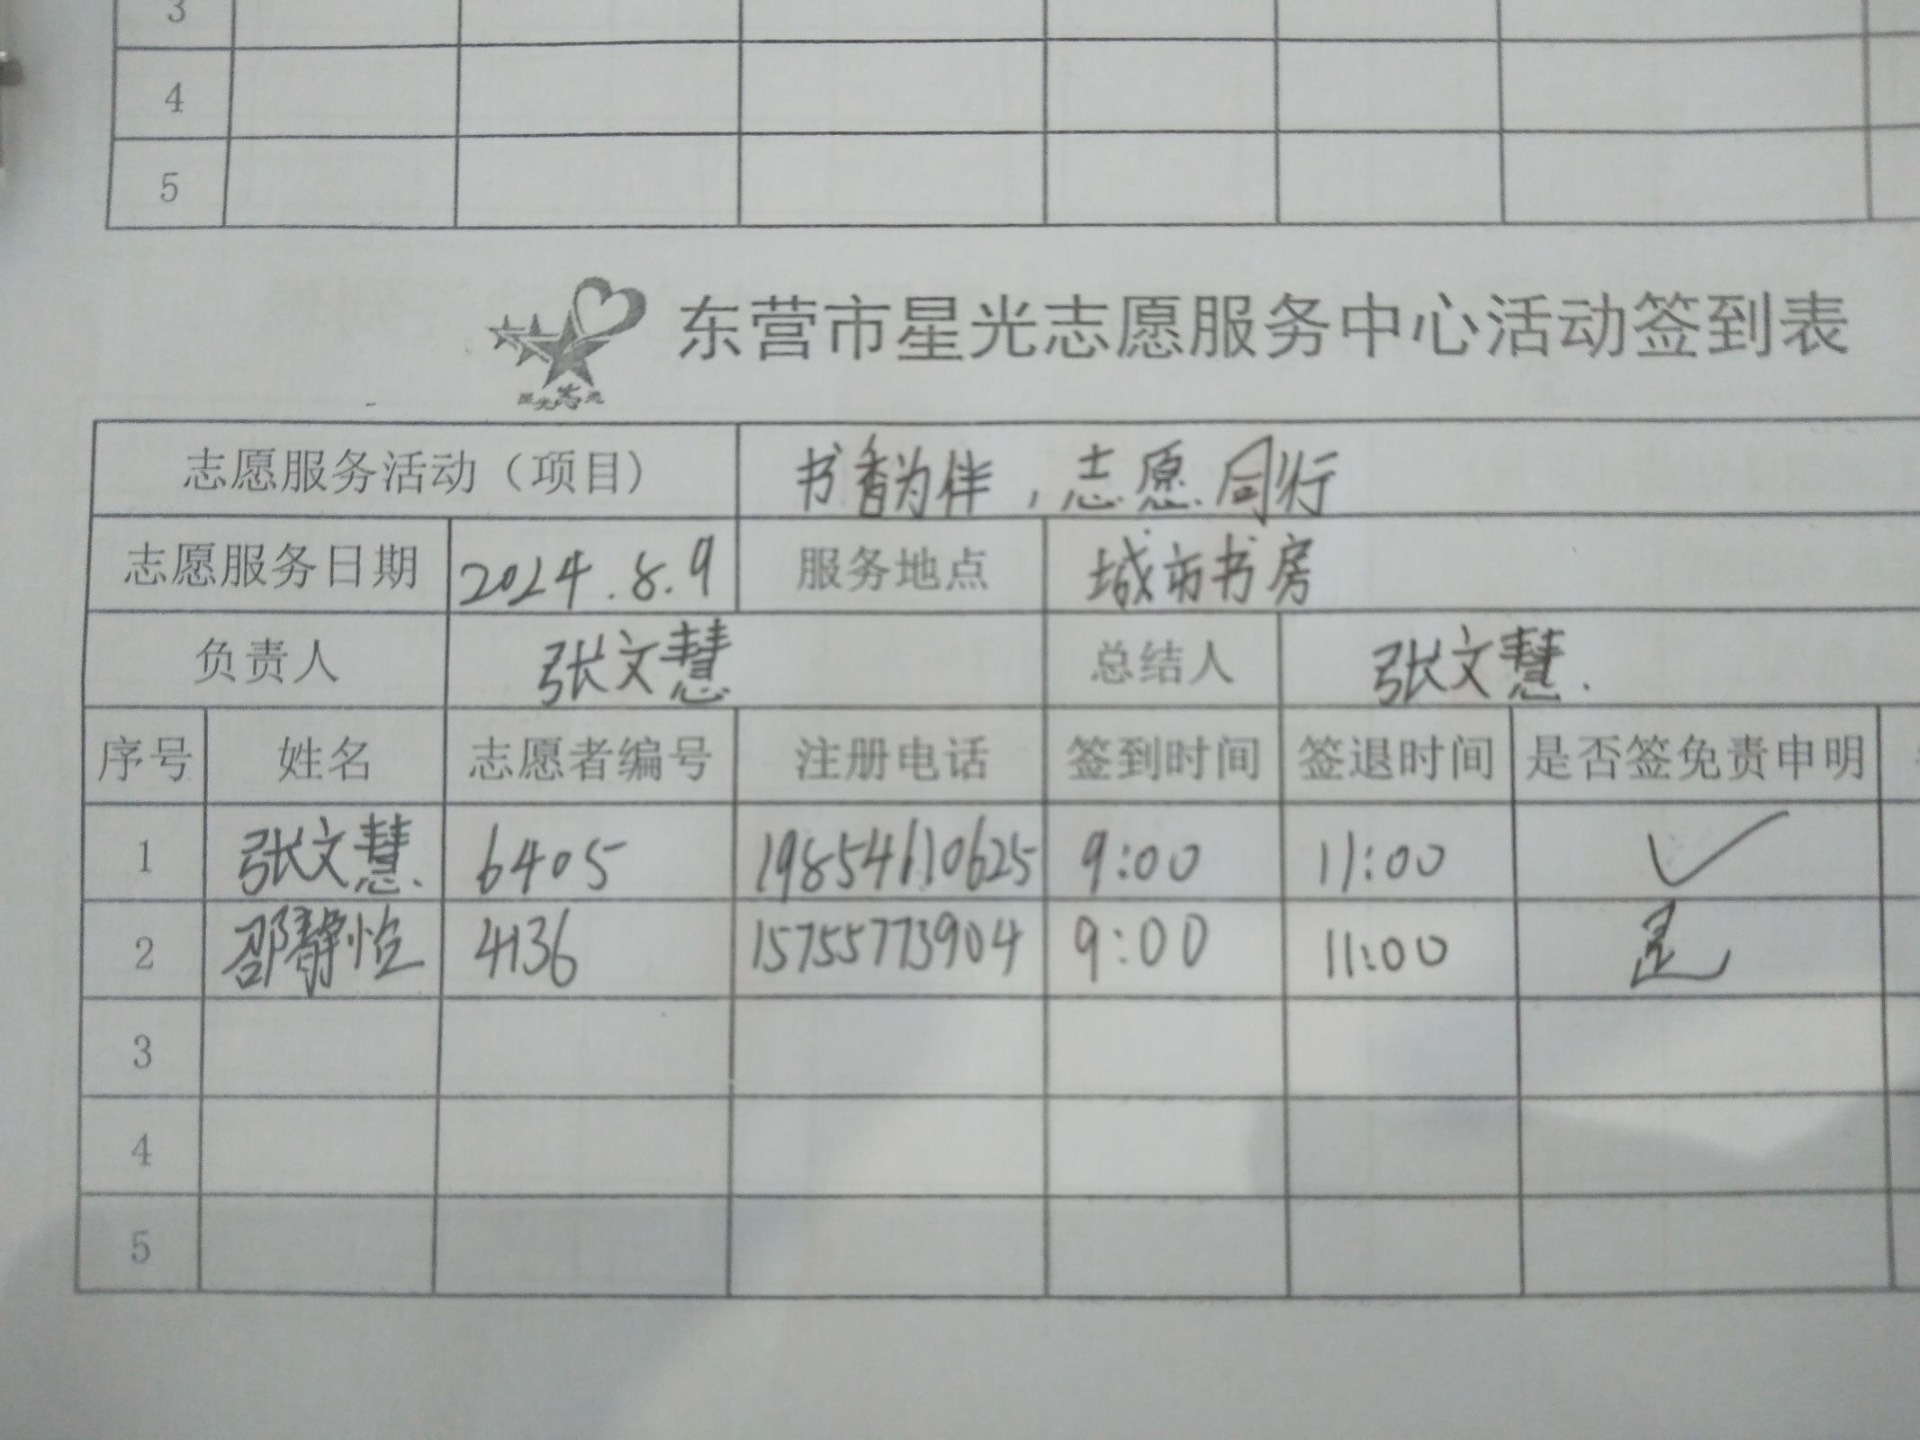 3
4
5
星光志愿
东营市星光志愿服务中心活动签到表
志愿服务活动（项目） 书香为伴，志愿同行
志愿服务日期 2024.8.9 服务地点 城市书房
负责人 张文慧 总结人 张文慧.
序号 姓名 志愿者编号 注册电话 签到时间 签退时间 是否签免责申明
1 张文慧. 6405 19854610625 9:00 11:00 ✓
2 邵静怡 4136 15755773904 9:00 11:00 是
3
4
5